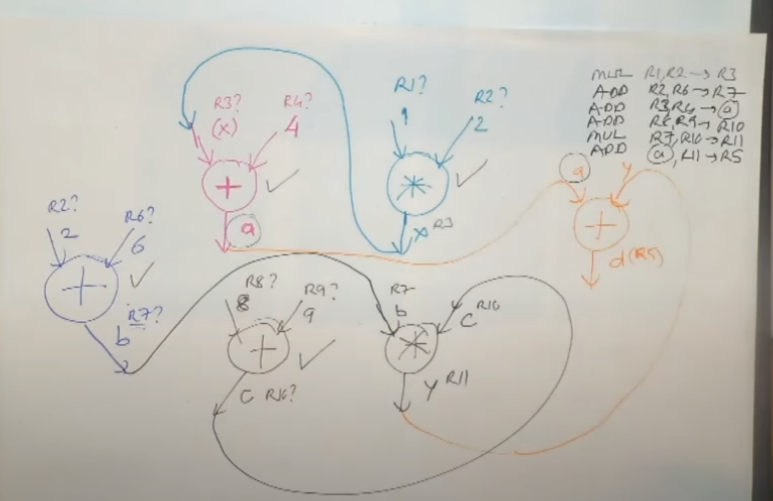 MUL R1,R2→R3
ADD R2,R6→R7
ADD R3,R4→a
ADD R8,R9→R10
MUL R7,R10→R11
ADD a,R11→R5
R3? R4?
(x) 4
+
a
R1? R2?
1 2
*
x R3
a y
+
d(R5)
R2? R6?
2 6
+
R7?
b
R8? R9?
8 9
+
C R10?
R7 R10
b C
*
y R11